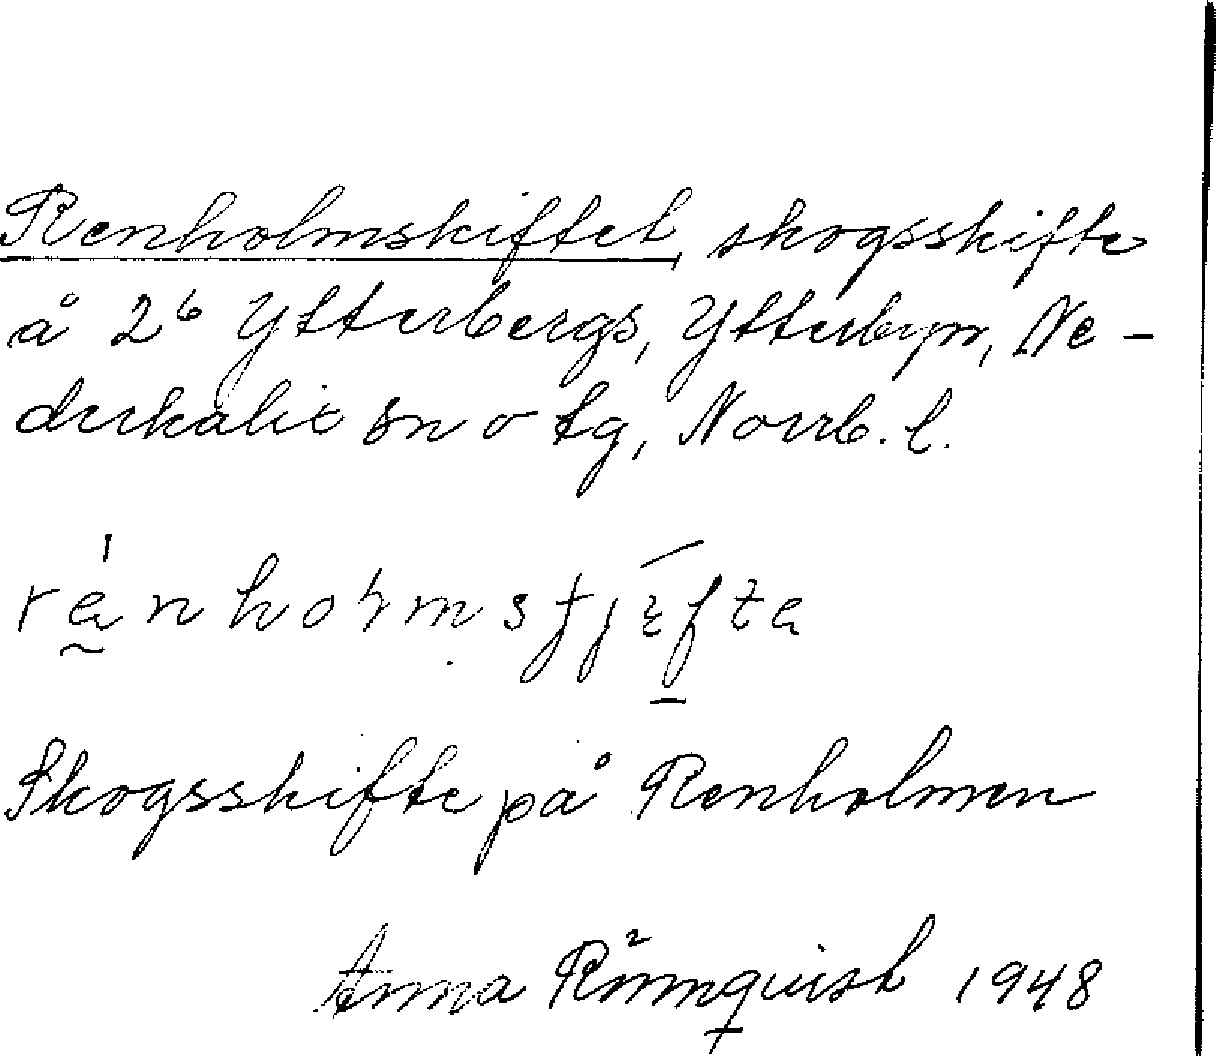 Renholmskiftet, skogsskifte
å 2⁶ Ytterbergs, Ytterbyn, Ne-
derkalix sn o tg, Norrb. l.
Skogsskifte på Renholmen
Anna Rönnquist 1948